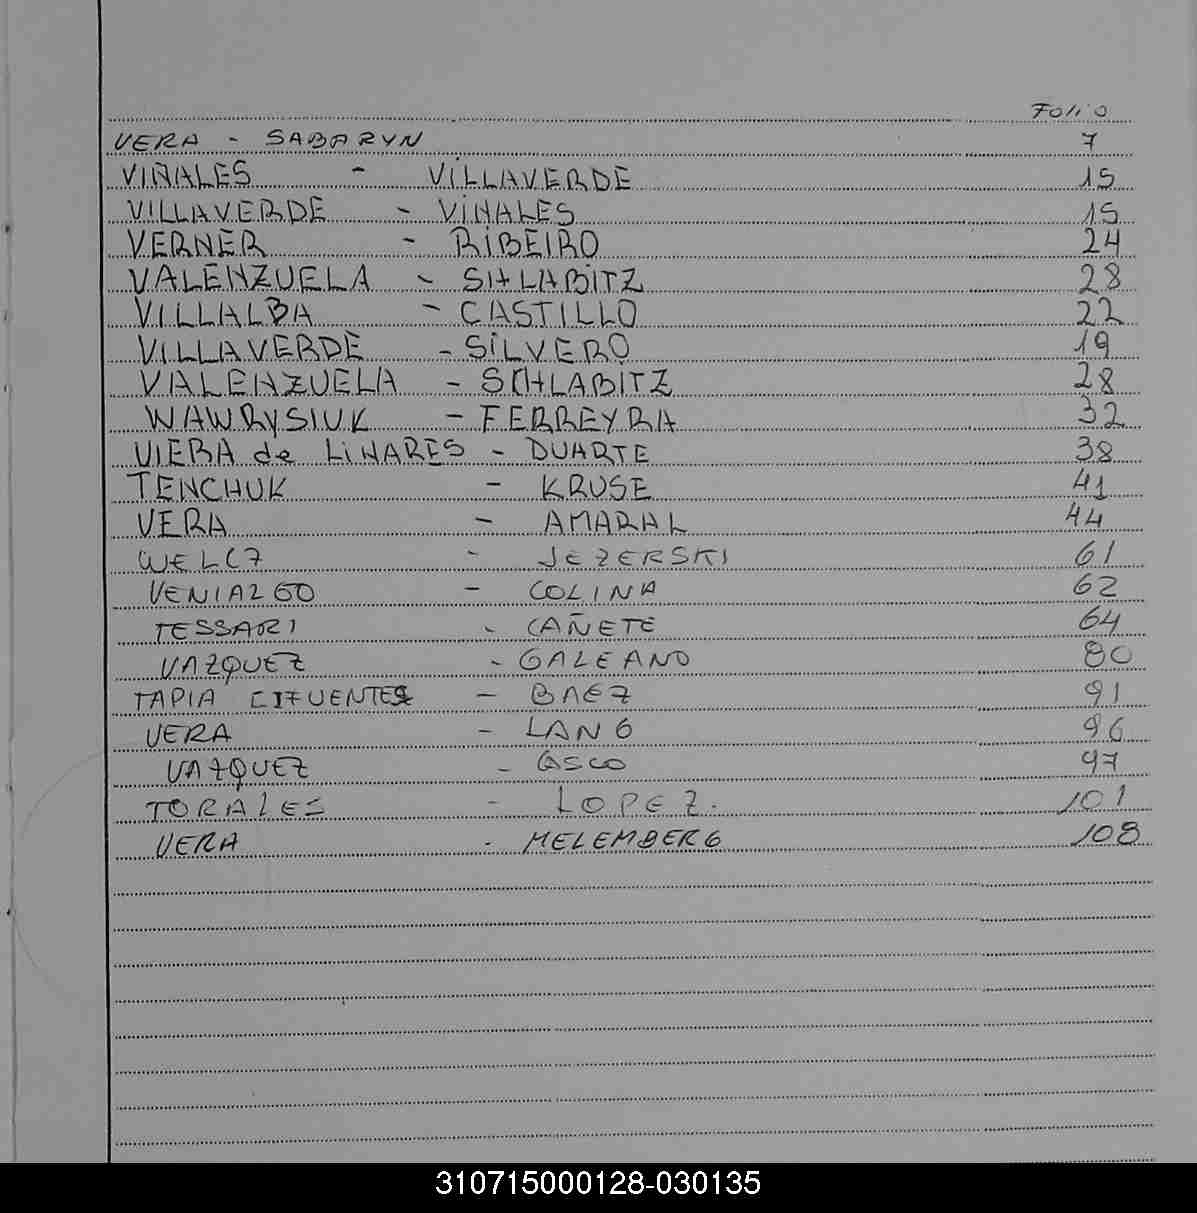 Folio
VERA - SABARYN 7
VIÑALES - VILLAVERDE 15
VILLAVERDE - VIÑALES 15
VERNER - RIBEIRO 24
VALENZUELA - SHLABITZ 28
VILLALBA - CASTILLO 22
VILLAVERDE - SILVERO 19
VALENZUELA - SCHLABITZ 28
WAWRYSIUK - FERREYRA 32
VIERA de LINARES - DUARTE 38
TENCHUK - KRUSE 41
VERA - AMARAL 44
WELCZ - JEZERSKI 61
VENIALGO - COLINA 62
TESSARI - CAÑETE 64
VAZQUEZ - GALEANO 80
TAPIA CIFUENTES - BAEZ 91
VERA - LANG 96
VAZQUEZ - CASCO 97
TORALES - LOPEZ. 101
VERA - MELEMBERG 108
310715000128-030135